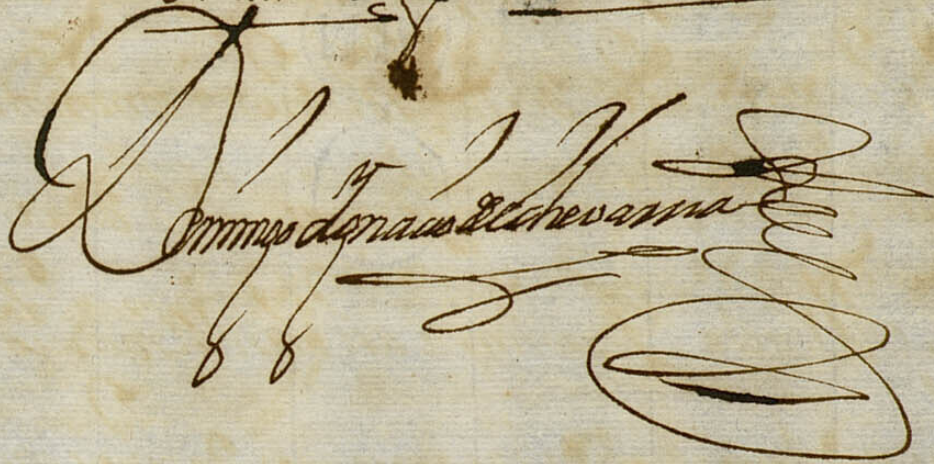 Domingo Ignacio de Echevarria